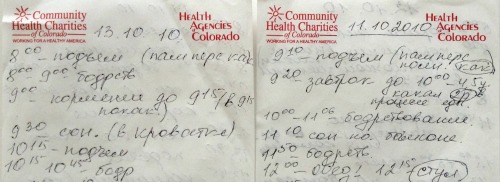 Community
Health Charities
of Colorado
WORKING FOR A HEALTHY AMERICA
Health
Agencies
Colorado
13.10.10.
8⁰⁰ - подъем (памперс как
8⁰⁰ 9⁰⁰ бодрств
9⁰⁰ кормление до 9¹⁵ / в 9¹⁵
покак)
9³⁰ сон. (в кроватке)
10¹⁵ - подъем
10¹⁵ 10⁴⁵ - бодр
Community
Health Charities
of Colorado
WORKING FOR A HEALTHY AMERICA
Health
Agencies
Colorado
11.10.2010
9¹⁰ - подъем (памперс
как)
9²⁰ завтрак до 10⁰⁰
какал в
процессе
10⁰⁰ - 11⁰⁶ - бодрствование.
11¹⁰ сон на балконе.
11⁵⁰ бодрств.
12⁰⁰ - обед! 12¹⁵ (стул)